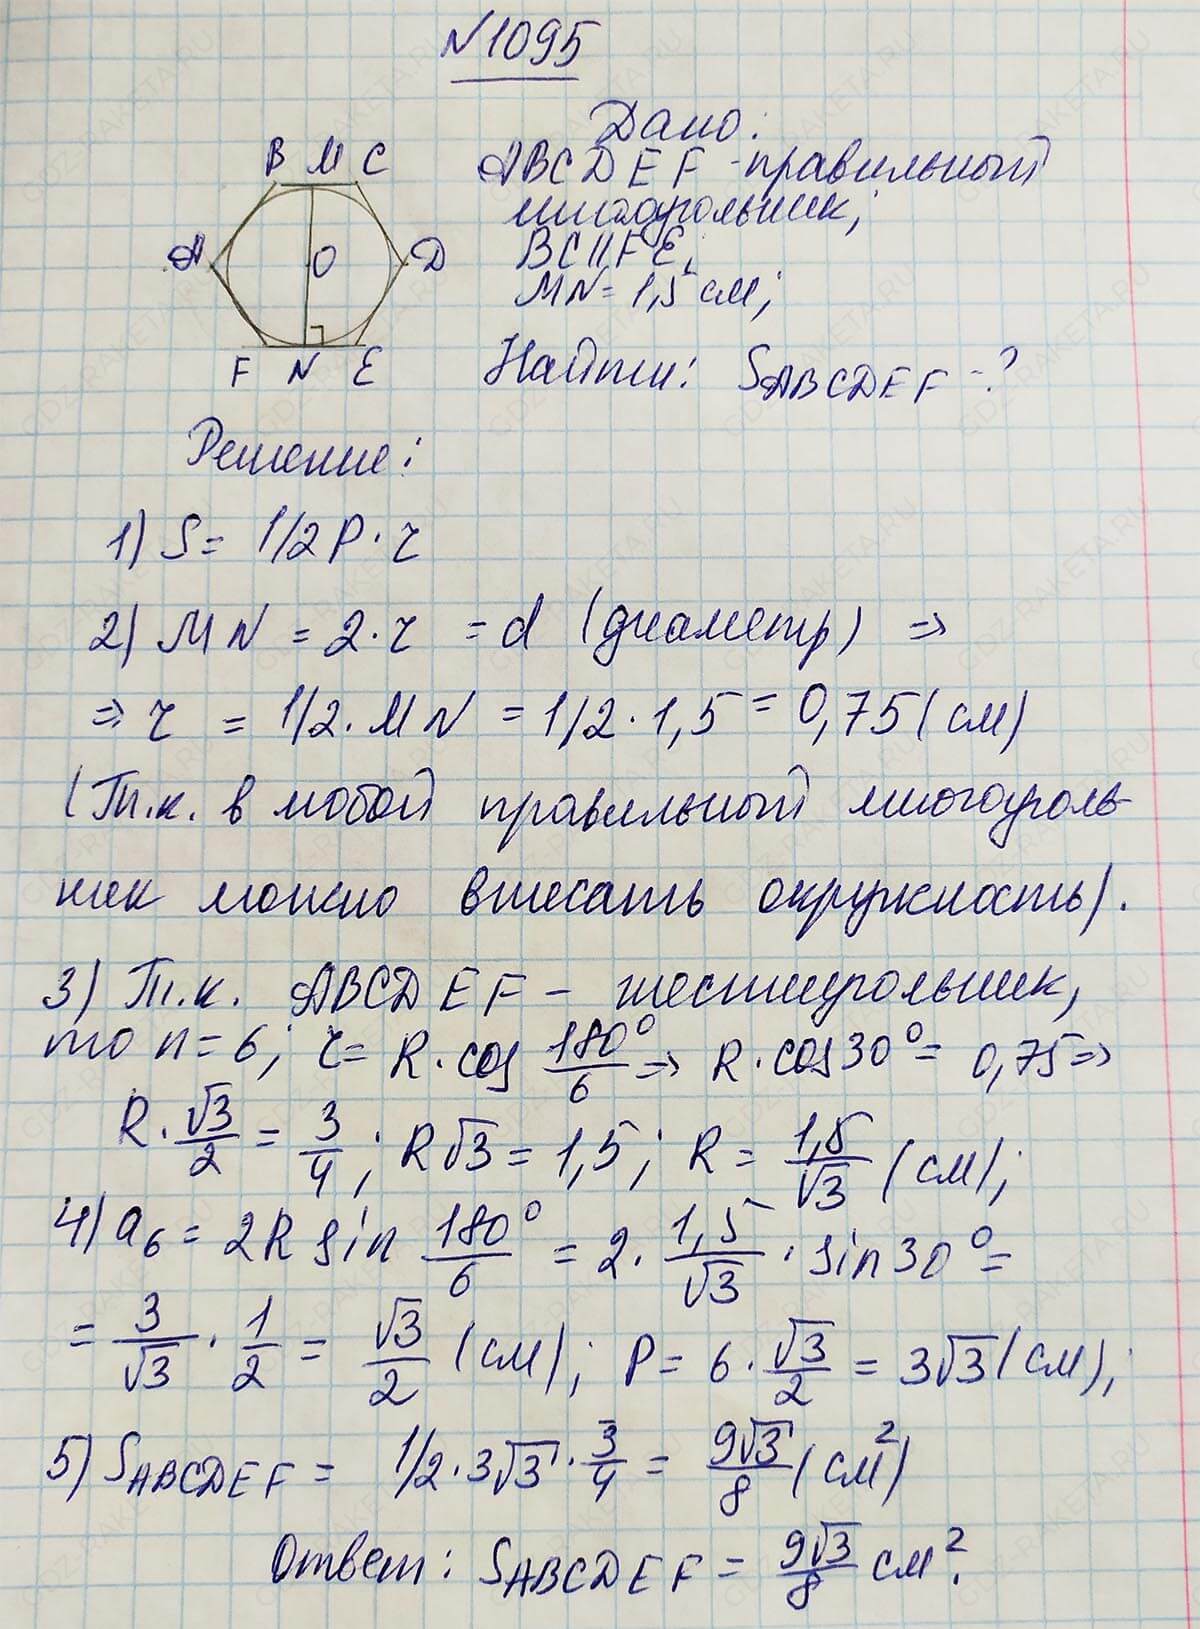 №1095
Дано:
B M C
ABCDEF - правильный
многоугольник;
A O D
BC || FE,
MN = 1,5 см;
F N E
Найти: S ABCDEF - ?
Решение:
1) S = 1/2 P · r
2) MN = 2 · r = d (диаметр) ⇒
⇒ r = 1/2 · MN = 1/2 · 1,5 = 0,75 (см)
(Т.к. в любой правильный многоуголь-
ник можно вписать окружность).
3) Т.к. ABCDEF – шестиугольник,
то n = 6; r = R · cos 180°/6 ⇒ R · cos 30° = 0,75 ⇒
R · √3/2 = 3/4; R√3 = 1,5; R = 1,5/√3 (см);
4) a₆ = 2R sin 180°/6 = 2 · 1,5/√3 · sin 30° =
= 3/√3 · 1/2 = √3/2 (см); P = 6 · √3/2 = 3√3 (см);
5) S ABCDEF = 1/2 · 3√3 · 3/4 = 9√3/8 (см²)
Ответ: S ABCDEF = 9√3/8 см².